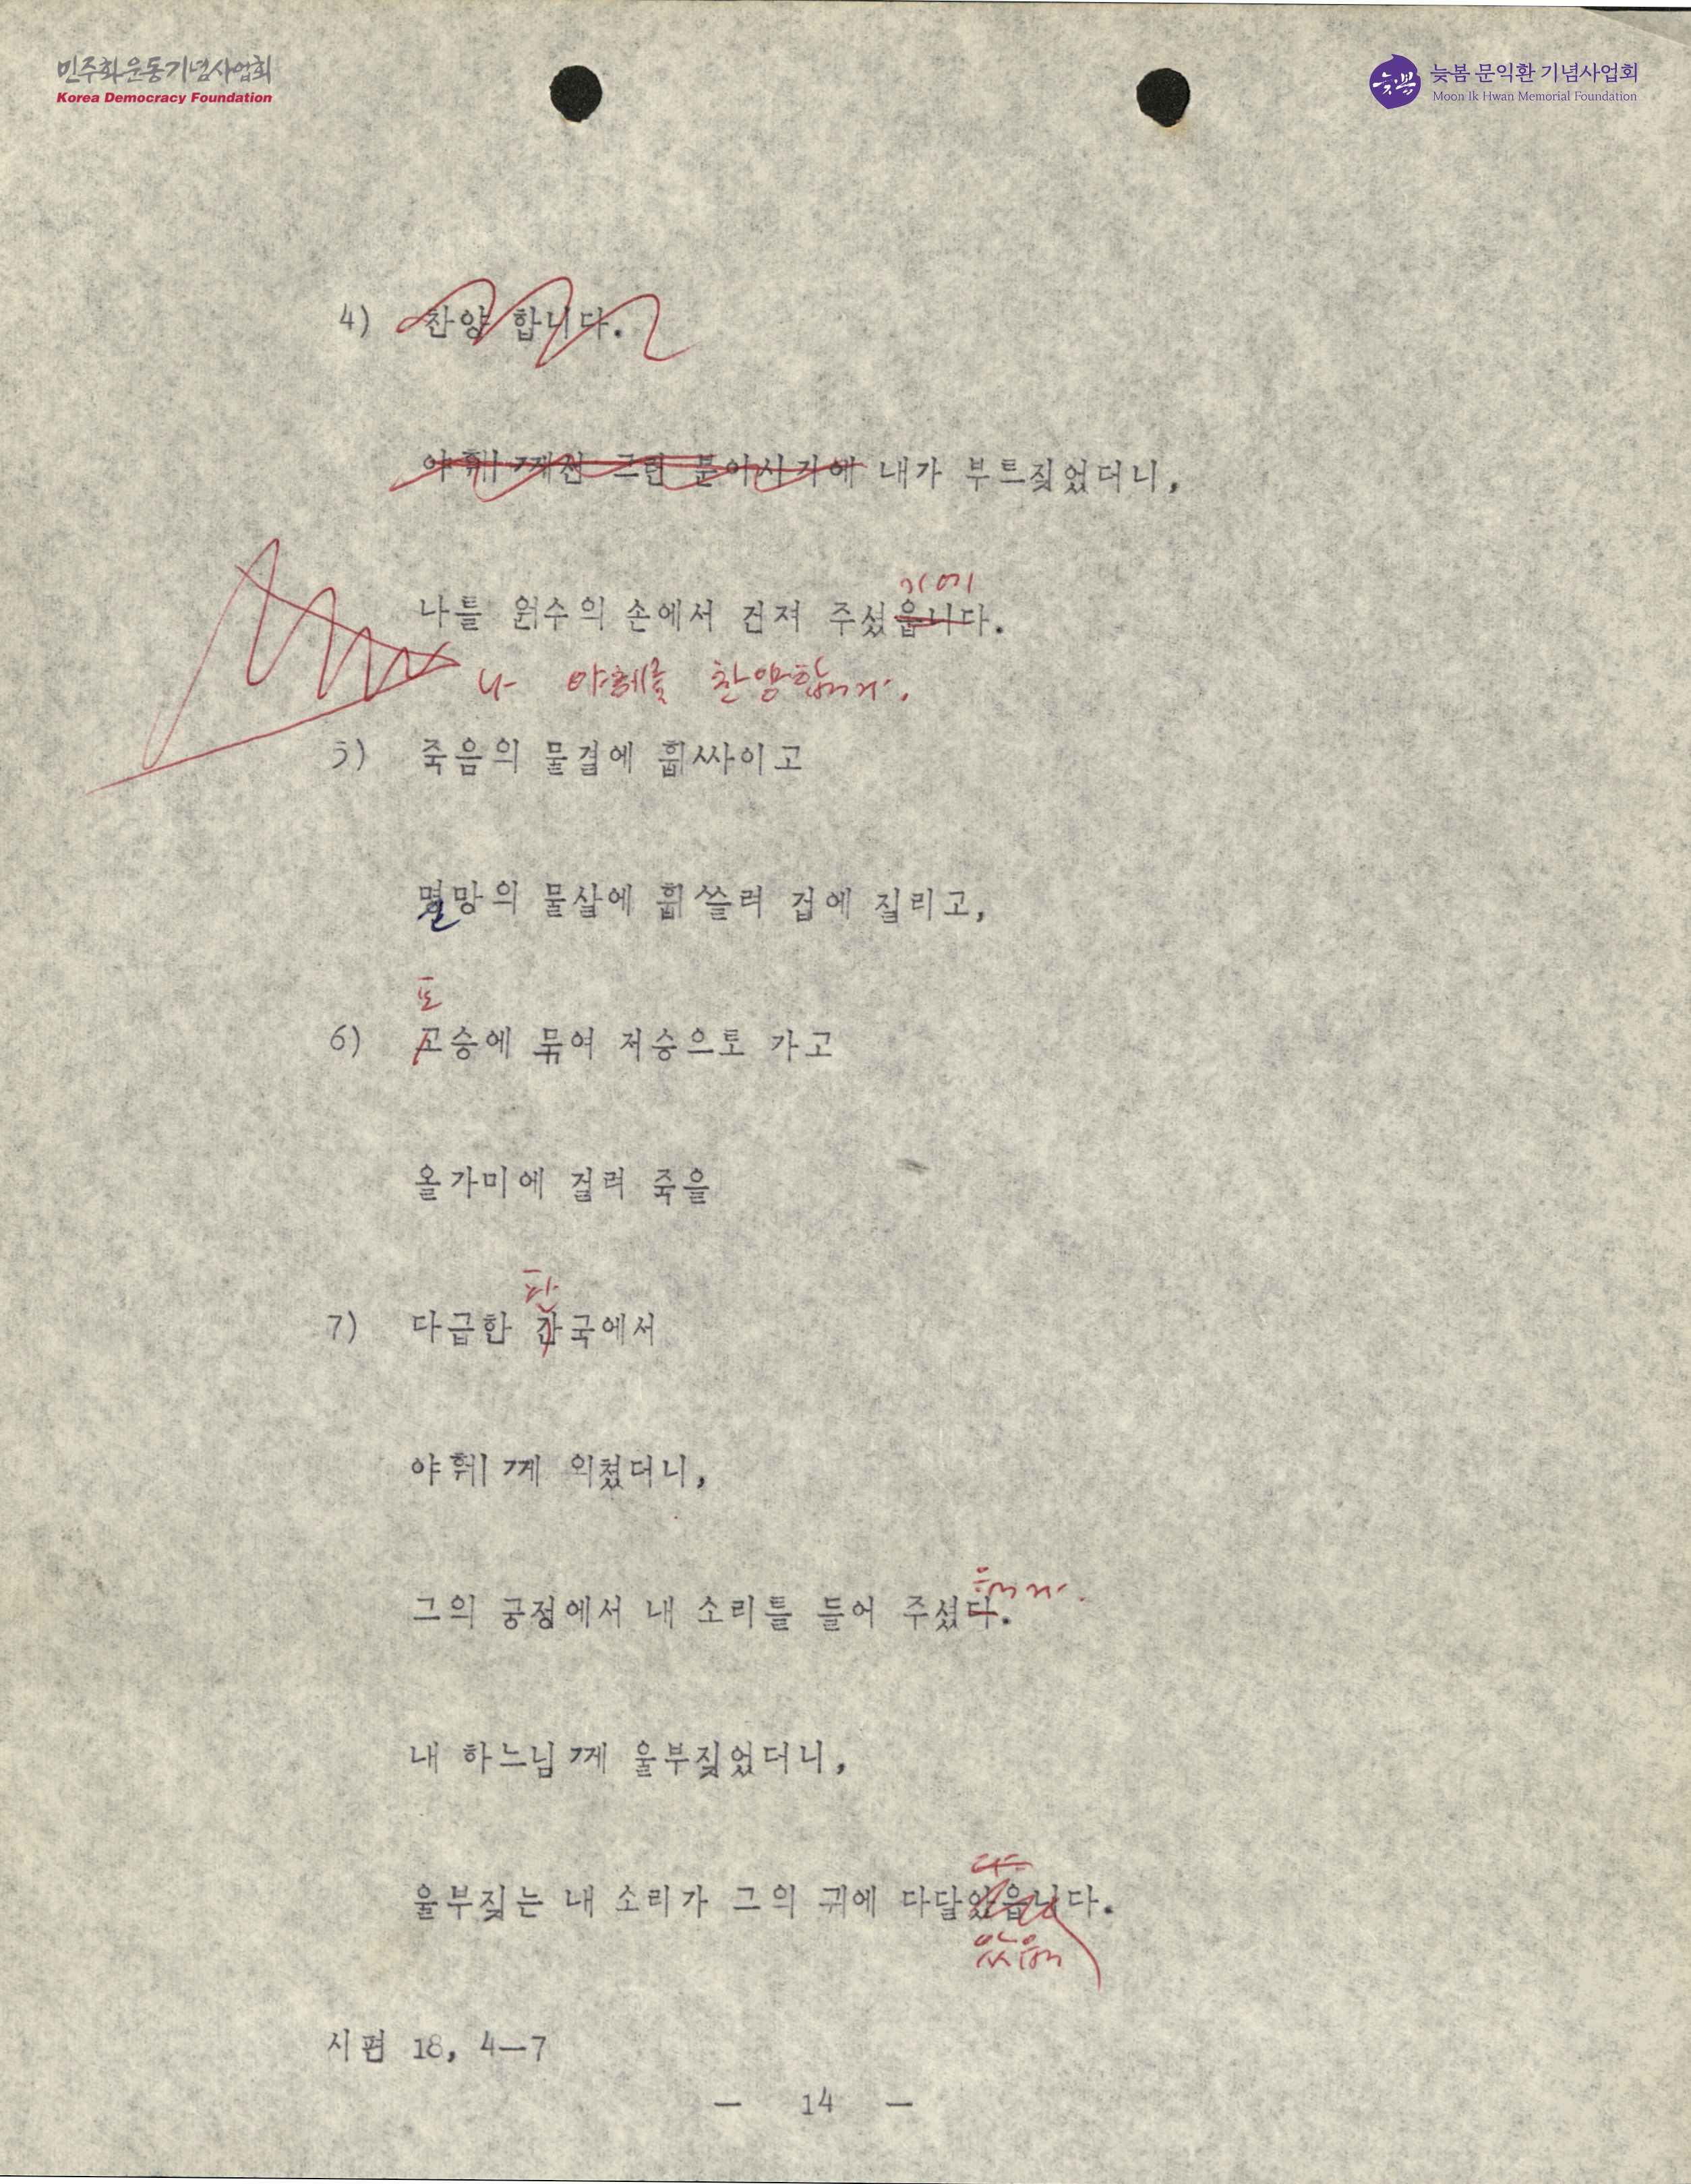 민주화운동기념사업회
Korea Democracy Foundation
늦봄
늦봄 문익환 기념사업회
Moon Ik Hwan Memorial Foundation
4) 찬양 합니다.
야훼께선 그런 분이시기에 내가 부르짖었더니,
기에
나를 원수의 손에서 건져 주셨읍니다.
나 야훼를 찬양합니다.
5) 죽음의 물결에 휩싸이고
멸망의 물살에 휩쓸려 겁에 질리고,
포
6) 고승에 묶여 저승으로 가고
올가미에 걸려 죽을
판
7) 다급한 간국에서
야훼께 외쳤더니,
읍니다.
그의 궁정에서 내 소리를 들어 주셨다.
내 하느님께 울부짖었더니,
울부짖는 내 소리가 그의 귀에 다달았읍니다.
았읍니
시편 18, 4—7
— 14 —